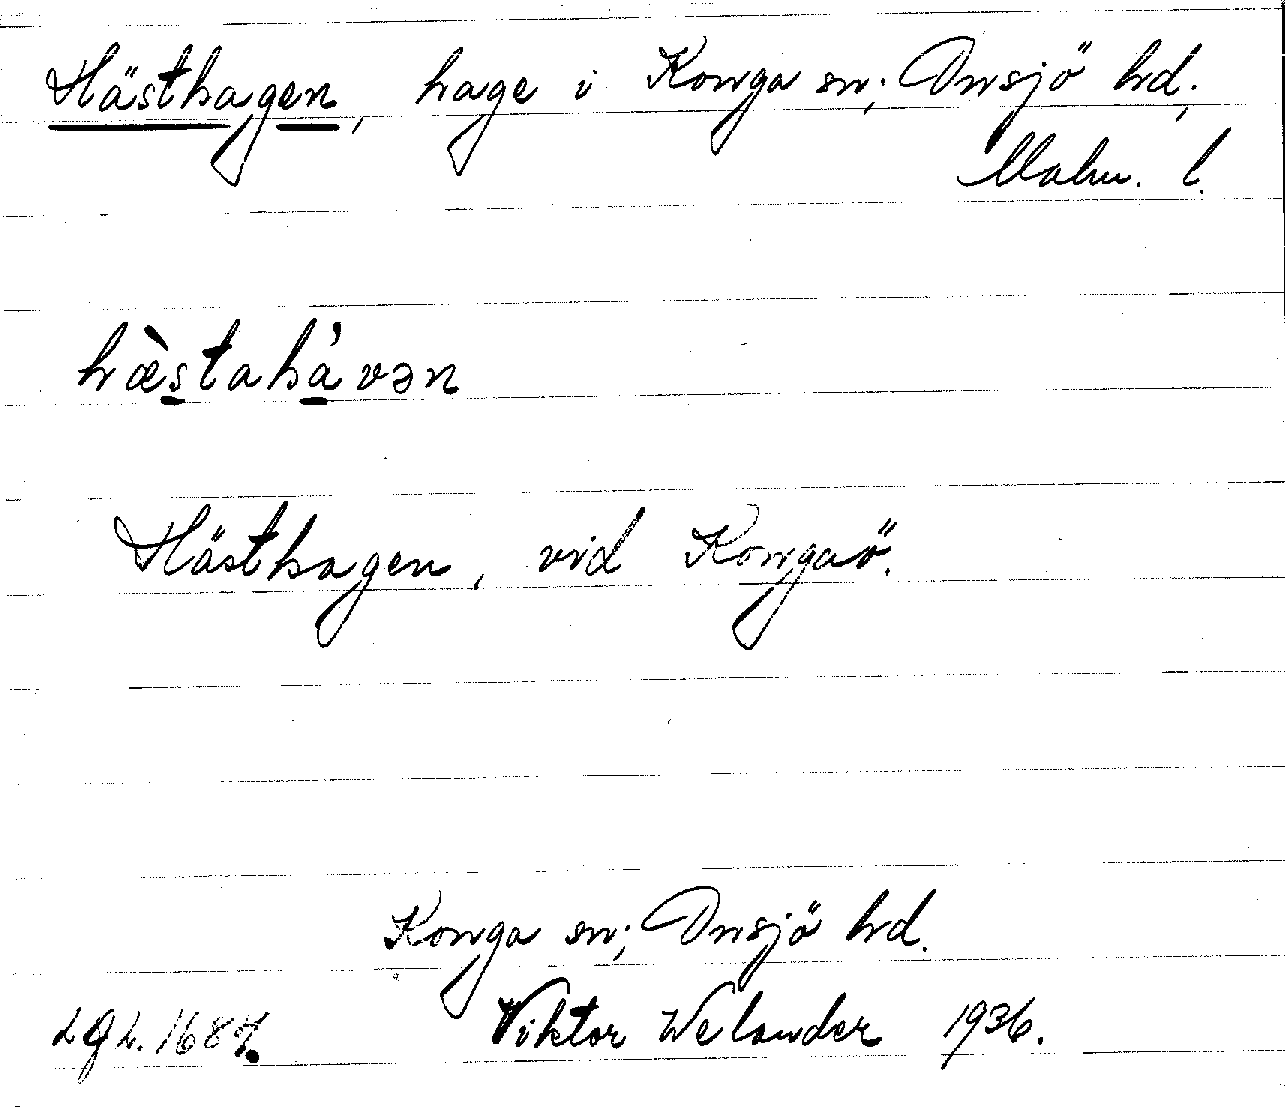 Hästhagen, hage i Konga sn; Onsjö hd,
Malm. l.
hæ̀stahá'vən
Hästhagen, vid Kongaö.
Konga sn; Onsjö hd.
Viktor Welander 1936.